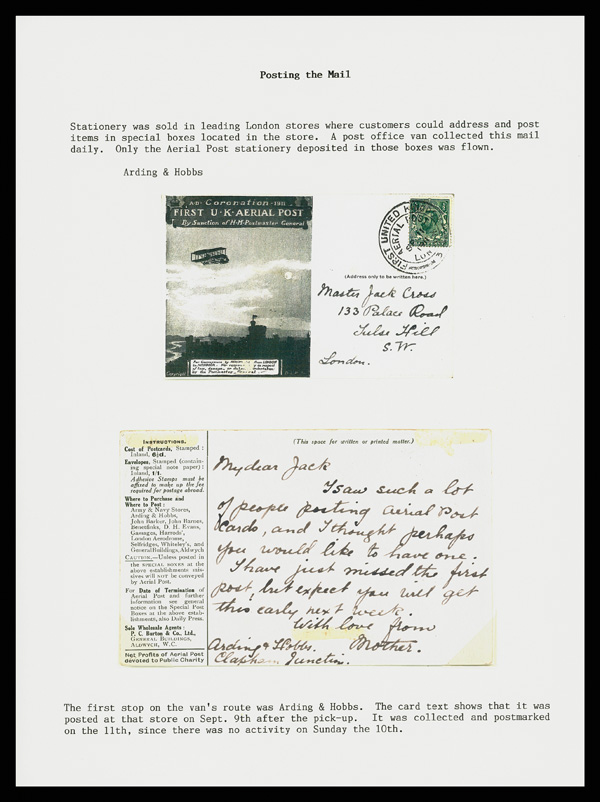 Posting the Mail
Stationery was sold in leading London stores where customers could address and post
items in special boxes located in the store.  A post office van collected this mail
daily.  Only the Aerial Post stationery deposited in those boxes was flown.
Arding & Hobbs
A.D. Coronation 1911
FIRST U.K. AERIAL POST
By Sanction of H.M. Postmaster General
FIRST UNITED KINGDOM
AERIAL POST
(Address only to be written here.)
Master Jack Cross
133 Palace Road
Tulse Hill
S.W.
London.
Copyright
INSTRUCTIONS.
Cost of Postcards, Stamped :
Inland, 6½d.
Envelopes, Stamped (contain-
ing special note paper) :
Inland, 1/1.
Adhesive Stamps must be
affixed to make up the fee
required for postage abroad.
Where to Purchase and
Where to Post :
Army & Navy Stores,
Arding & Hobbs,
John Barker, John Barnes,
Benetfinks, D. H. Evans,
Gamages, Harrods',
London Aerodrome,
Selfridges, Whiteley's, and
General Buildings, Aldwych
CAUTION.—Unless posted in
the SPECIAL BOXES at the
above establishments mis-
sives will NOT be conveyed
by Aerial Post.
For Date of Termination of
Aerial Post and further
information see general
notice on the Special Post
Boxes at the above estab-
lishments, also Daily Press.
Sole Wholesale Agents :
P. C. Burton & Co., Ltd.,
GENERAL BUILDINGS,
ALDWYCH, W.C.
Net Profits of Aerial Post
devoted to Public Charity
(This space for written or printed matter.)
My dear Jack
I saw such a lot
of people posting Aerial Post
Cards, and I thought perhaps
you would like to have one.
I have just missed the first
post, but expect you will get
this early next week.
With love from
Mother.
Arding & Hobbs.
Clapham Junction.
The first stop on the van's route was Arding & Hobbs.  The card text shows that it was
posted at that store on Sept. 9th after the pick-up.  It was collected and postmarked
on the 11th, since there was no activity on Sunday the 10th.